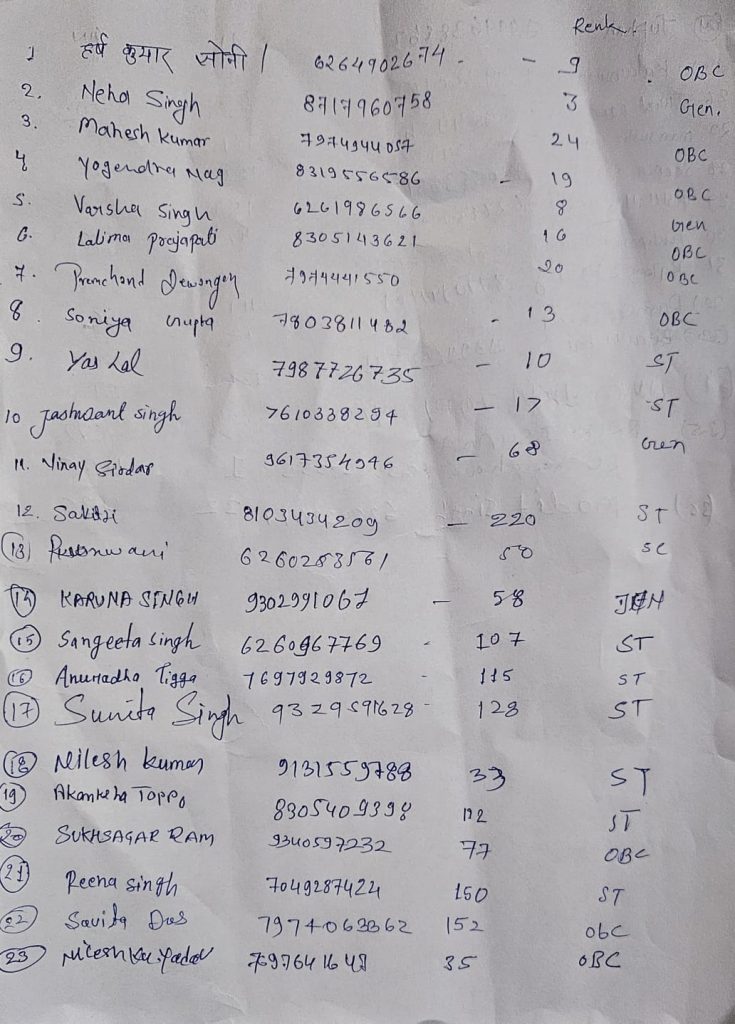 Renk.
1 हर्ष कुमार सोनी / 6264902674 - - 9 . OBC
2. Neha Singh 8717960758 3 Gen.
3. Mahesh Kumar 7974944057 24 OBC
4 Yogendra Nag 8319556586 - 19 OBC
5. Varsha Singh 6261986566 8 Gen
6. Lalima Prajapati 8305143621 16 OBC
7. Premchand Dewangen 7974441550 20 OBC
8. Soniya Gupta 7803811482 - 13 OBC
9. Yas Lal 7987726735 - 10 ST
10 Jashwant Singh 7610338294 - 17 ST
11. Vinay Sirdar 9617354946 - 68 Gen
12. Sakshi 8103434209 - 220 ST
13 6260283561 50 SC
14 KARUNA SINGH 9302991067 - 58
15 Sangeeta Singh 6260967769 - 107 ST
16 Anuradha Tigga 7697929872 - 115 ST
17 Sunita Singh 9329591628 - 128 ST
18 Nilesh Kumar 9131559788 33 ST
19 Akanksha Toppo 8305409398 122 ST
20 SUKHSAGAR RAM 9340597232 77 OBC
21 Reena Singh 7049287424 150 ST
22 Savita Das 7974063362 152 obc
23 Nilesh Ku. Yadav 35 OBC